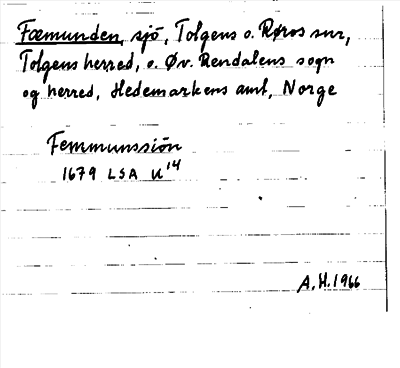 Fæmunden, sjö, Tolgens o. Røros snr,
Tolgens herred, o. Øv. Rendalens sogn
og herred, Hedemarkens amt, Norge
Femmunssiön
1679 LSA U'14
A.H. 1966